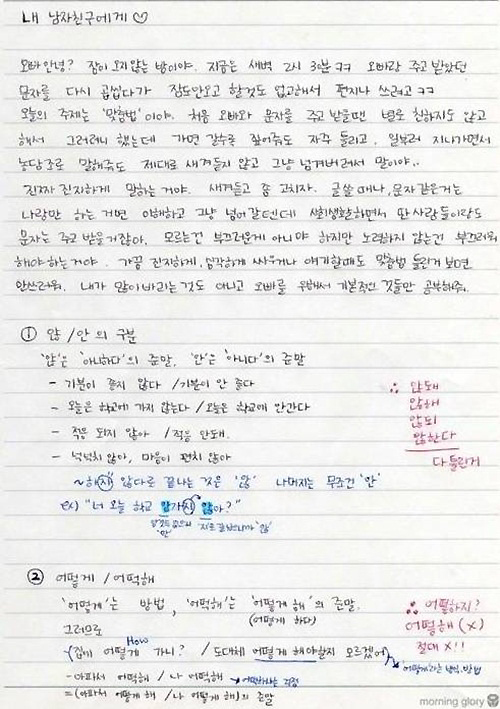 내 남자친구에게 ♡
오빠 안녕? 잠이 오지 않는 밤이야. 지금은 새벽 2시 30분 ㅋㅋ 오빠랑 주고 받았던
문자를 다시 곱씹다가 잠도 안오고 할것도 없고해서 편지나 쓰려고 ㅋㅋ
오늘의 주제는 '맞춤법'이야. 처음 오빠와 문자를 주고 받을땐 별로 친하지도 않고
해서 그러려니 했는데 가면 갈수록 짚어줘도 자주 틀리고, 일부러 지나가면서
농담조로 말해줘도 제대로 새겨듣지 않고 그냥 넘겨버려서 말이야..
진짜 진지하게 말하는 거야. 새겨듣고 좀 고치자. 글쓸 때나, 문자같은거는
나랑만 하는 거면 이해하고 그냥 넘어갈텐데 사회생활하면서 딴사람들이랑도
문자는 주고 받을거잖아. 모르는건 부끄러운게 아니야 하지만 노력하지 않는건 부끄러워
해야 하는거야. 가끔 진지하게, 심각하게 싸우거나 얘기할때도 맞춤법 틀린거 보면
안쓰러워. 내가 많이 바라는 것도 아니고 오빠를 위해서 기본적인 것들만 공부해줘.
① 않/안 의 구분
'않'은 '아니하다'의 준말, '안'은 '아니다'의 준말
- 기분이 좋지 않다 / 기분이 안 좋다
- 오늘은 학교에 가지 않는다 / 오늘은 학교에 안간다
- 적응 되지 않아 / 적응 안돼.
- 넉넉치 않아, 마음이 편치 않아
∴ 않돼
않해
않되
않한다
다 틀린거
~하지 않다로 끝나는 것은 '않' 나머지는 무조건 '안'
ex) "너 오늘 학교 안가지 않아?"
'안'
② 어떻게 / 어떡해
'어떻게'는 방법, '어떡해'는 '어떻게 해'의 준말.
(어떻게 하다)
그러므로
How
- (집에 어떻게 가니? / 도대체 어떻게 해야할지 모르겠어)
어떻게라는 방식, 방법
- 아파서 어떡해 / 나 어떡해 → 어떡하냐는 걱정
= (아파서 어떻게 해 / 나 어떻게 해)의 준말
∴ 어떻하지?
어떻해 (x)
절대 X!!
morning glory